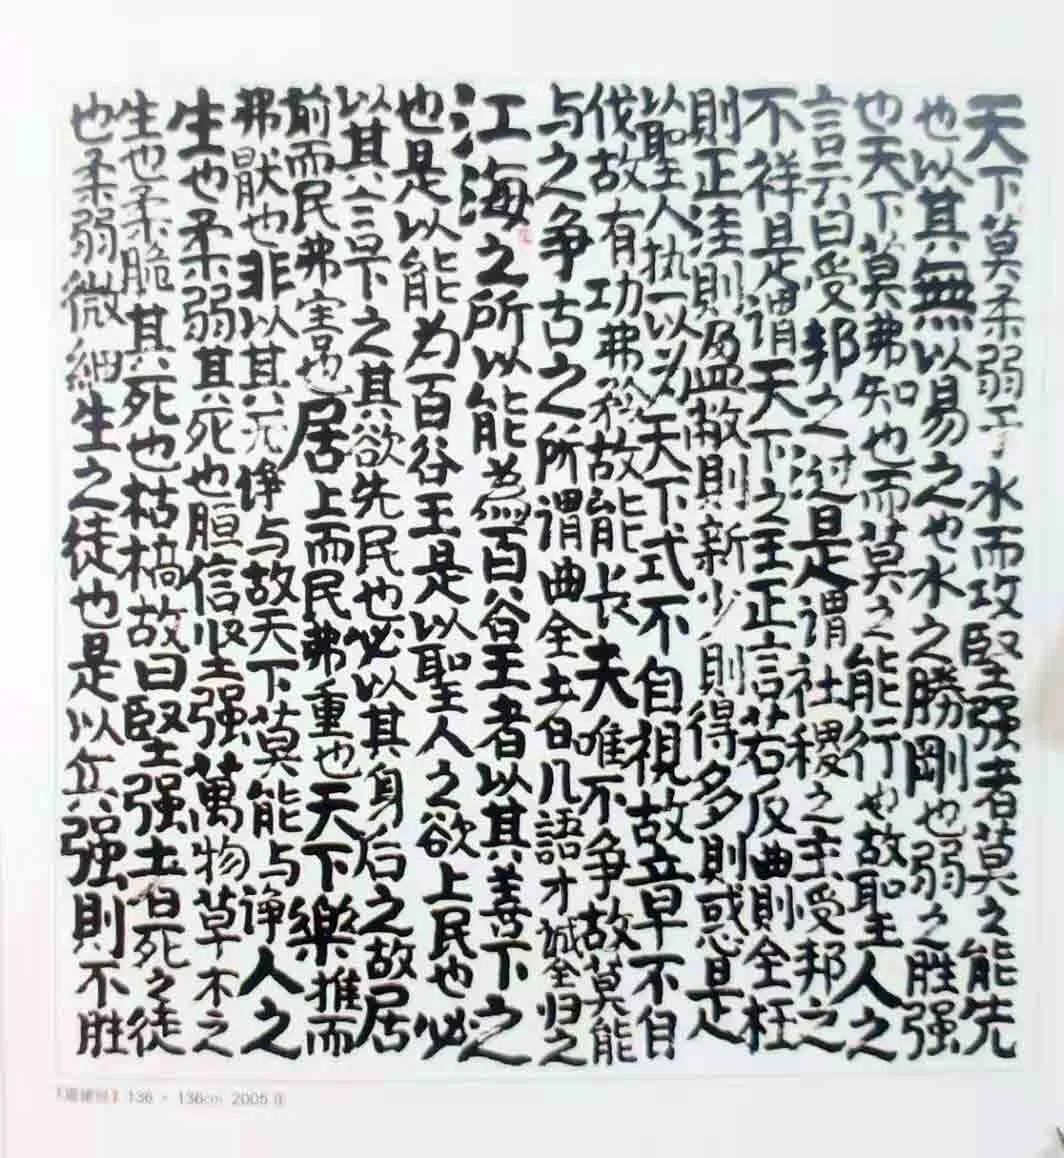 天下莫柔弱于水而攻堅强者莫之能先
也以其無以易之也水之勝剛也弱之胜强
也天下莫弗知也而莫之能行也故聖人之
言云曰受邦之过是謂社稷之主受邦之
不祥是謂天下之王正言若反曲則全枉
則正洼則盈敝則新少則得多則惑是
以聖人执一以为天下式不自視故章不自
伐故有功弗矜故能长夫唯不争故莫能
与之争古之所謂曲全者曰几語才誠全归之
江海之所以能為百谷王者以其善下之
也是以能为百谷王是以聖人之欲上民也必
以其言下之其欲先民也必以其身后之故居
前而民弗害也居上而民弗重也天下樂推而
弗厭也非以其无諍与故天下莫能与諍人之
生也柔弱其死也䐵信坚强萬物草木之
生也柔脆其死也枯槁故曰堅强者死之徒
也柔弱微細生之徒也是以兵强則不胜
136 × 136cm 2005年